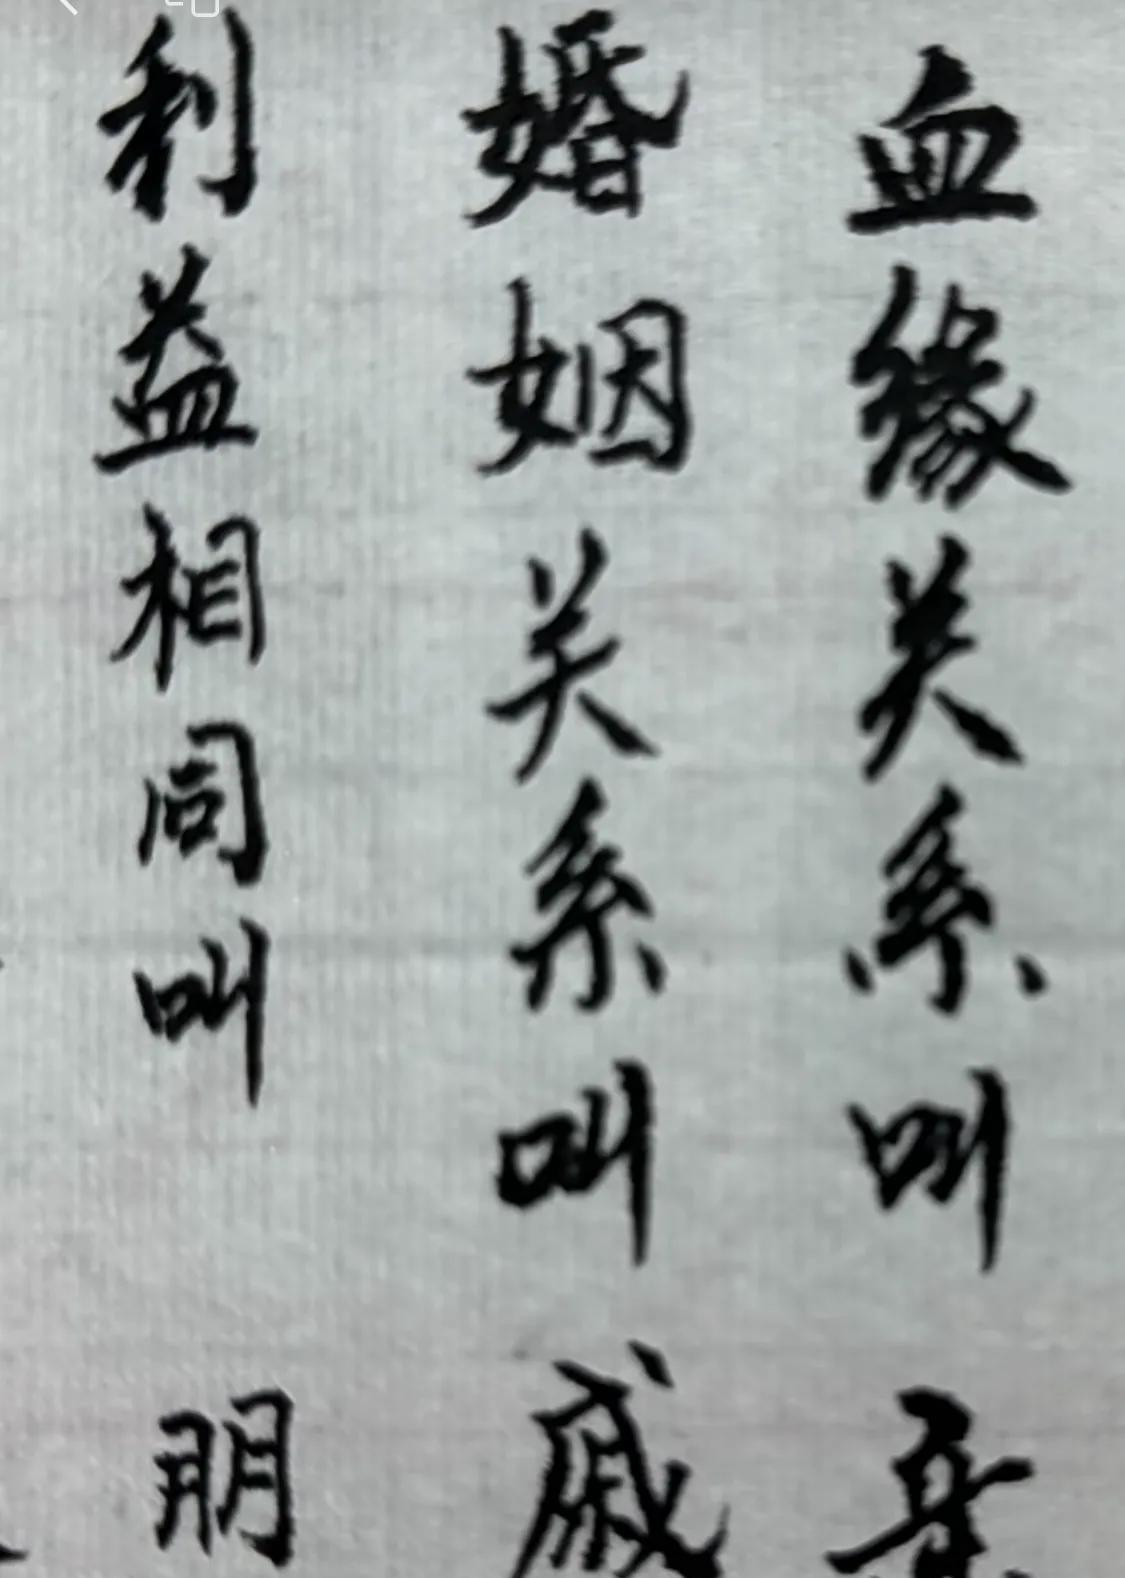 血缘关系叫 亲
婚姻关系叫 戚
利益相同叫 朋